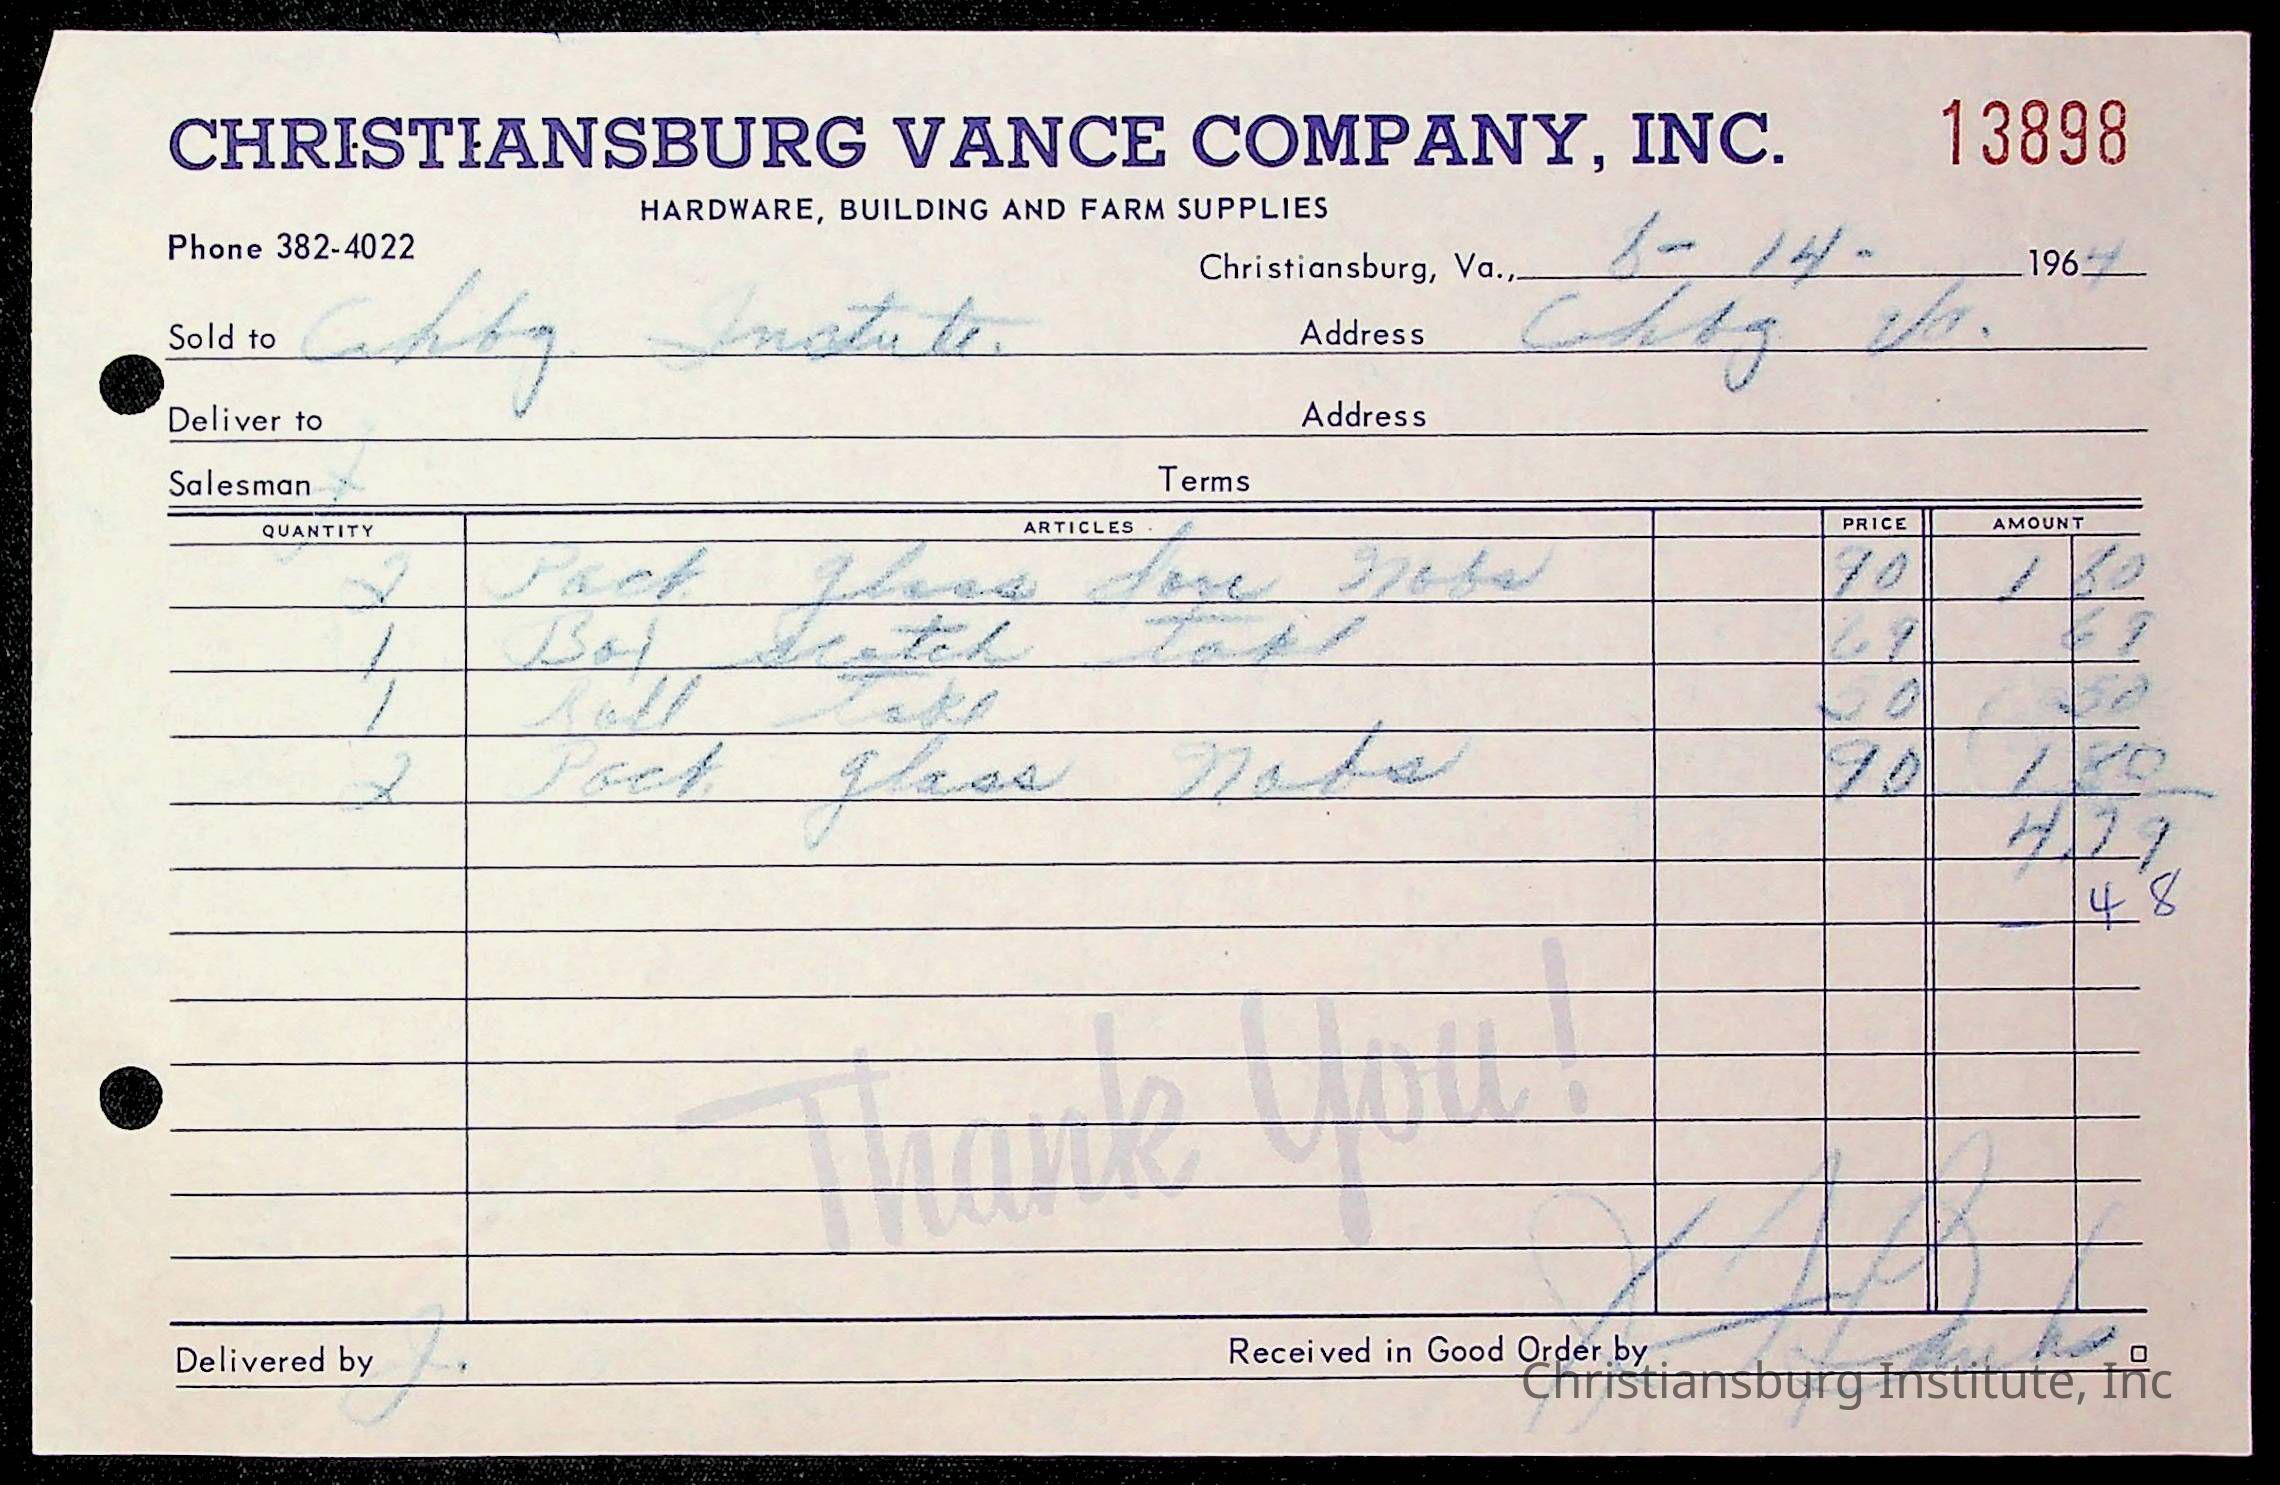 CHRISTIANSBURG VANCE COMPANY, INC. 13898
HARDWARE, BUILDING AND FARM SUPPLIES
Phone 382-4022
Christiansburg, Va., 8-14- 1964
Sold to Chbg Instute. Address Chbg Va.
Deliver to Address
Salesman Terms
QUANTITY ARTICLES PRICE AMOUNT
2 Pack glass door Nobs 90 1 80
1 Box scotch tape 69 69
1 Roll tape 50 50
2 Pack glass Nobs 90 1 80
4.79
48
Thank You!
Delivered by J. Received in Good Order by
Christiansburg Institute, Inc